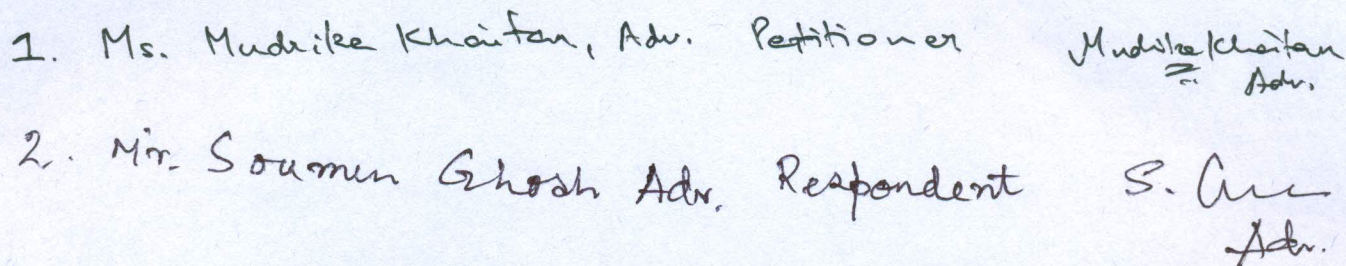 1. Ms. Mudrika Khaitan, Adv. Petitioner Mudrika Khaitan
Adv.
2. Mr. Soumen Ghosh Adv. Respondent S.
Adv.